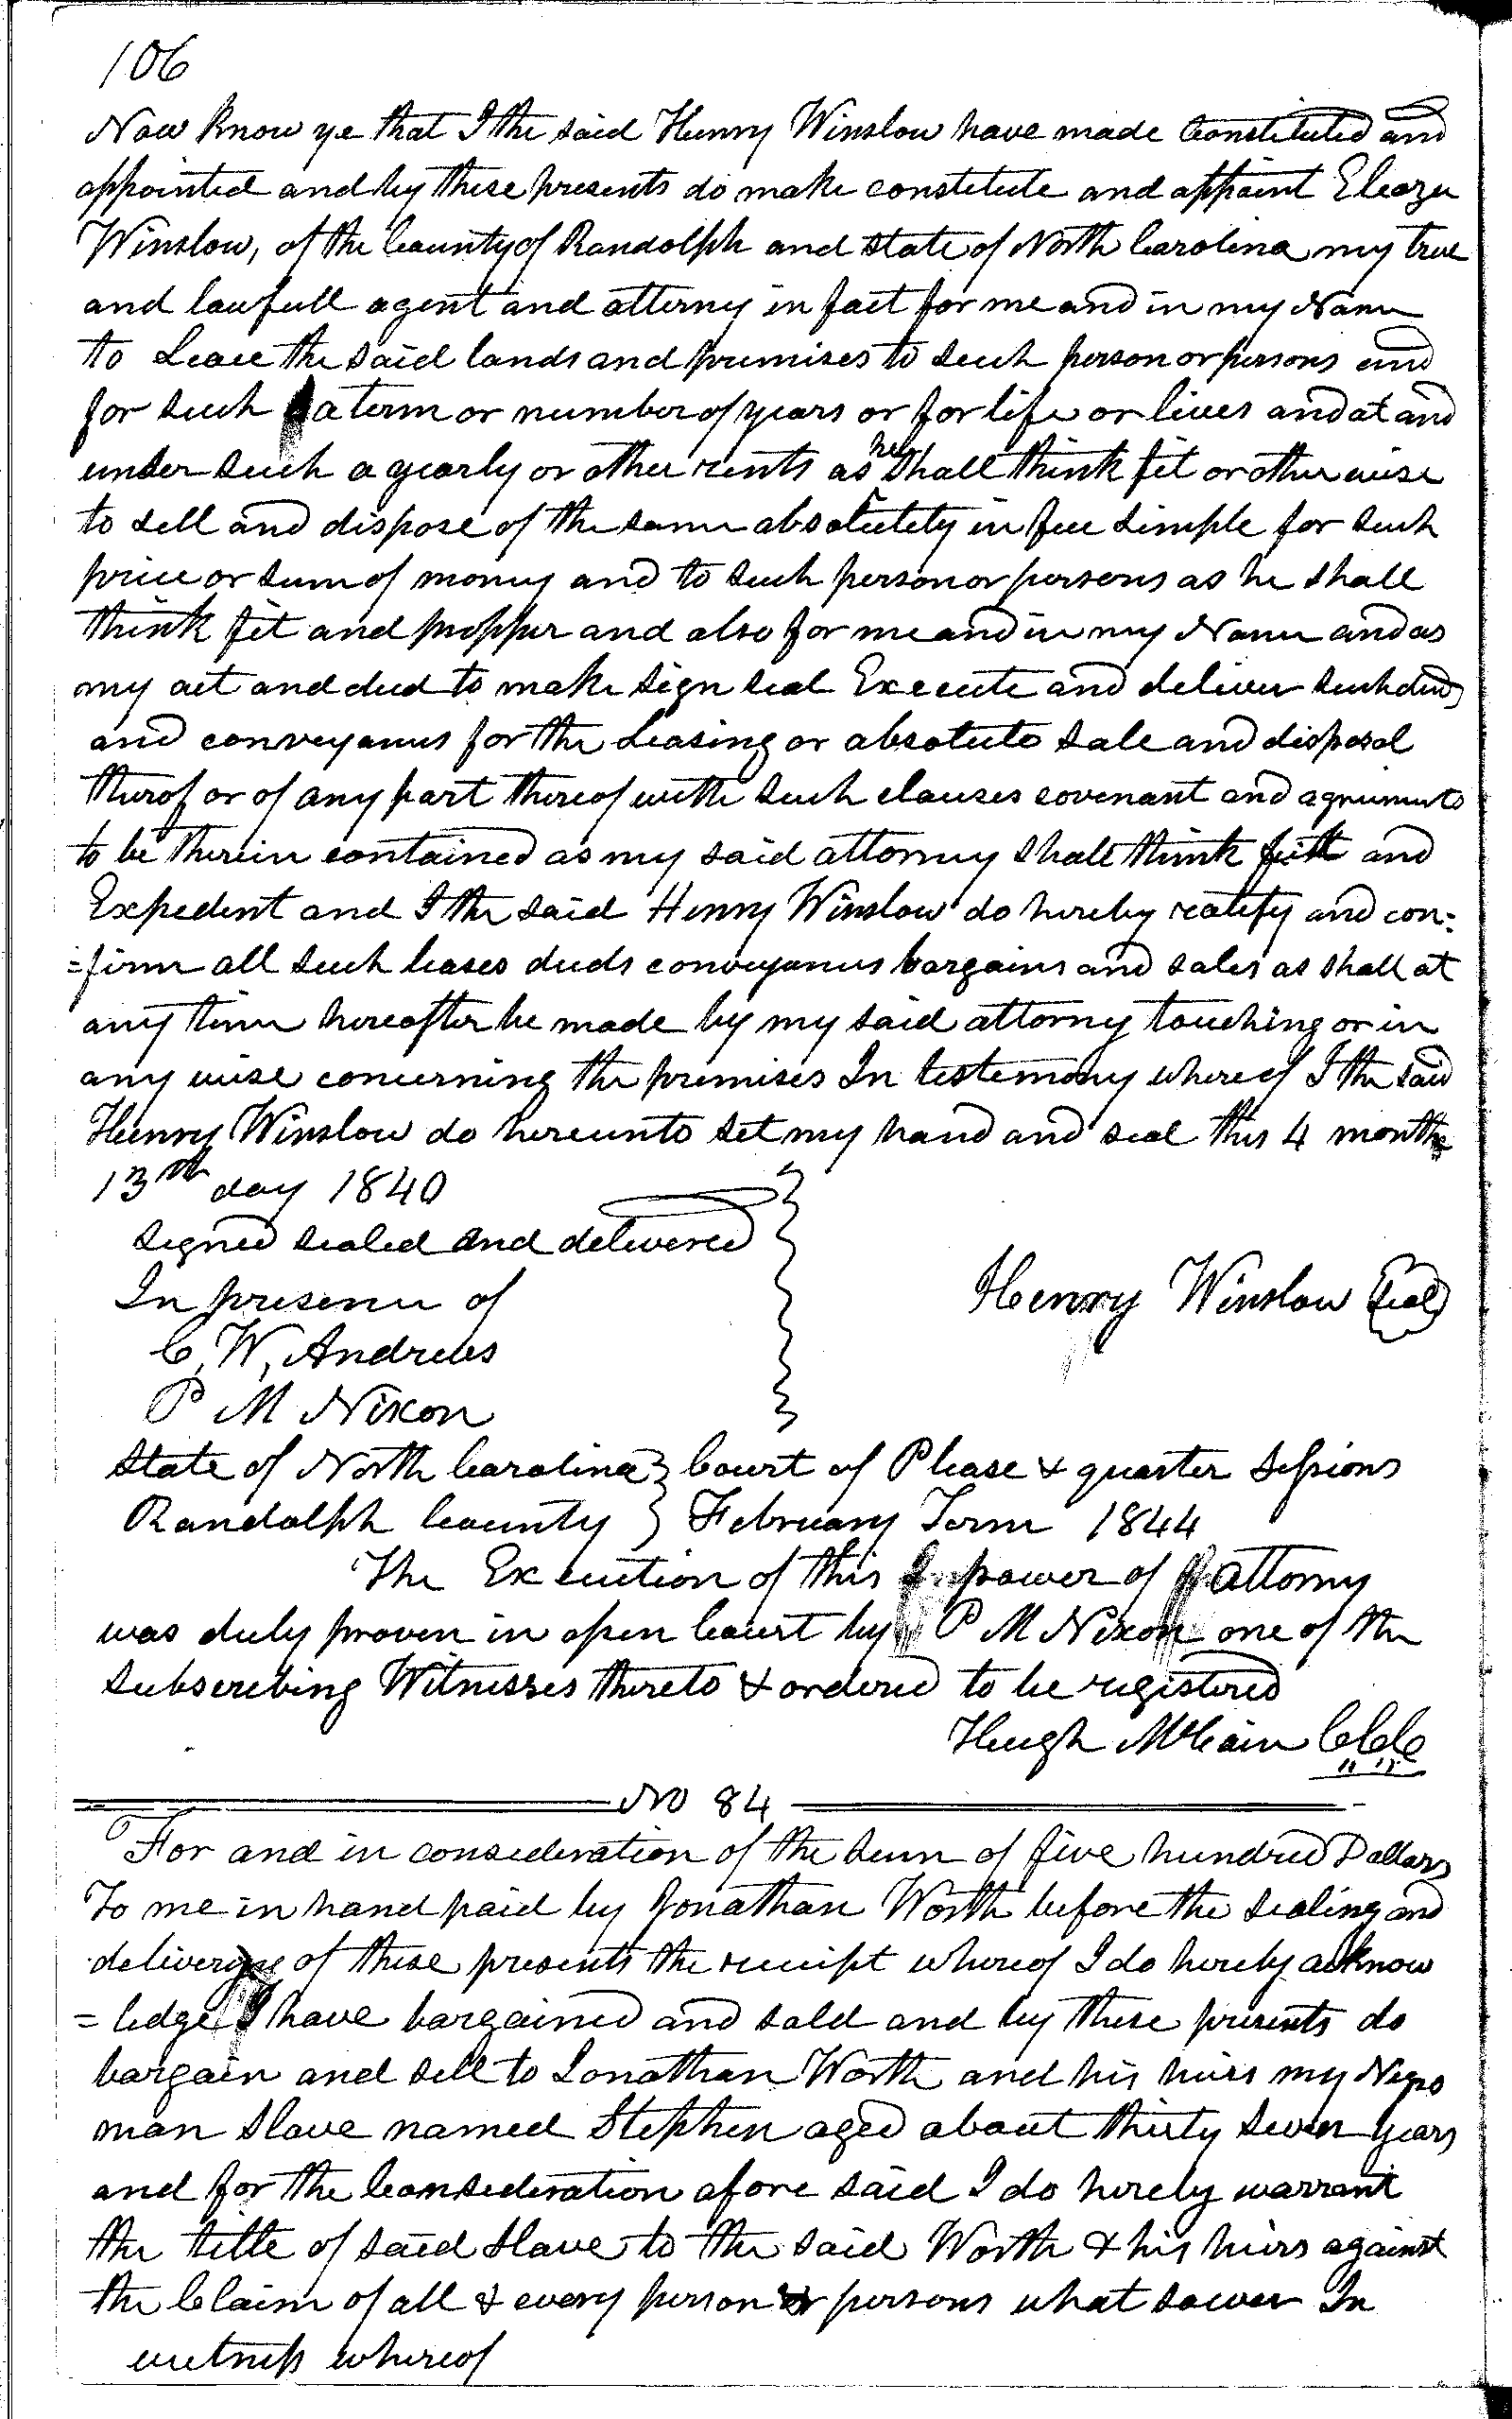 106
Now Know ye that I the said Henry Winslow have made Constituted and
appointed and by these presents do make constitute and appoint Eleazer
Winslow, of the County of Randolph and State of North Carolina my true
and lawfull agent and attorny in fact for me and in my Name
to Lease the said lands and premises to such person or persons and
for such a term or number of years or for life or lives and at and
under such a yearly or other rents as he shall think fit or otherwise
to sell and dispose of the same absolutely in fee simple for such
price or sum of money and to such person or persons as he shall
think fit and propper and also for me and in my Name and as
my act and deed to make sign seal Execute and deliver such deeds
and conveyances for the Leasing or absolute sale and disposal
therof or of any part thereof with such clauses covenant and agreements
to be therein contained as my said attorney shall think fitt and
Expedent and I the said Henry Winslow do hereby ratify and con=
=firm all such leases deeds conveyances bargains and sales as shall at
any time hereafter be made by my said attorny touching or in
any wise concerning the premises In testemony whereof I the said
Henry Winslow do hereunto set my hand and seal this 4 month
13th day 1840
signed sealed and delivered
In presence of
Henry Winslow Seal
C. W, Andrews
P M Nixon
State of North Carolina } Court of Please & quarter Sessions
Randolph County } February Term 1844
The Execution of this power of attorny
was duly proven in open Court by P M Nixon one of the
subscribing Witnesses thereto & ordered to be registered
Hugh McCain CCC
No 84
For and in consideration of the sum of five hundred Dollars
To me in hand paid by Jonathan Worth before the sealing and
delivering of these presents the receipt whereof I do hereby acknow
=ledge I have bargained and sold and by these presents do
bargain and sell to Jonathan Worth and his heirs my Negro
man Slave named Stephen aged about thirty seven years
and for the Consideration afore said I do hereby warrant
the title of said slave to the said Worth & his heirs against
the Claim of all & every person or persons what sower In
witness whereof